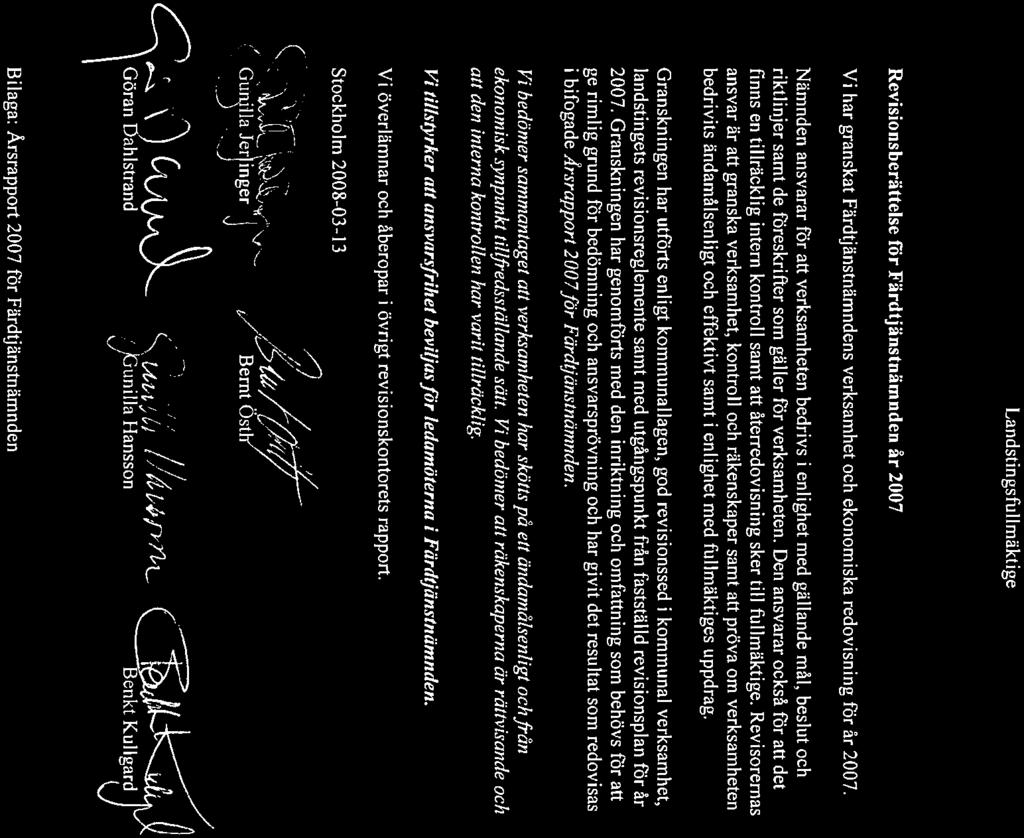 Landstingsfullmäktige
Revisionsberättelse för Färdtjänstnämnden år 2007
Vi har granskat Färdtjänstnämndens verksamhet och ekonomiska redovisning för år 2007.
Nämnden ansvarar för att verksamheten bedrivs i enlighet med gällande mål, beslut och
riktlinjer samt de föreskrifter som gäller för verksamheten. Den ansvarar också för att det
finns en tillräcklig intern kontroll samt att återredovisning sker till fullmäktige. Revisorernas
ansvar är att granska verksamhet, kontroll och räkenskaper samt att pröva om verksamheten
bedrivits ändamålsenligt och effektivt samt i enlighet med fullmäktiges uppdrag.
Granskningen har utförts enligt kommunallagen, god revisionssed i kommunal verksamhet,
landstingets revisionsreglemente samt med utgångspunkt från fastställd revisionsplan för år
2007. Granskningen har genomförts med den inriktning och omfattning som behövs för att
ge rimlig grund för bedömning och ansvarsprövning och har givit det resultat som redovisas
i bifogade Årsrapport 2007 för Färdtjänstnämnden.
Vi bedömer sammantaget att verksamheten har skötts på ett ändamålsenligt och från
ekonomisk synpunkt tillfredsställande sätt. Vi bedömer att räkenskaperna är rättvisande och
att den interna kontrollen har varit tillräcklig.
Vi tillstyrker att ansvarsfrihet beviljas för ledamöterna i Färdtjänstnämnden.
Vi överlämnar och åberopar i övrigt revisionskontorets rapport.
Stockholm 2008-03-13
Gunilla Jerlinger Bernt Östh
Göran Dahlstrand Gunilla Hansson Benkt Kullgard
Bilaga: Årsrapport 2007 för Färdtjänstnämnden